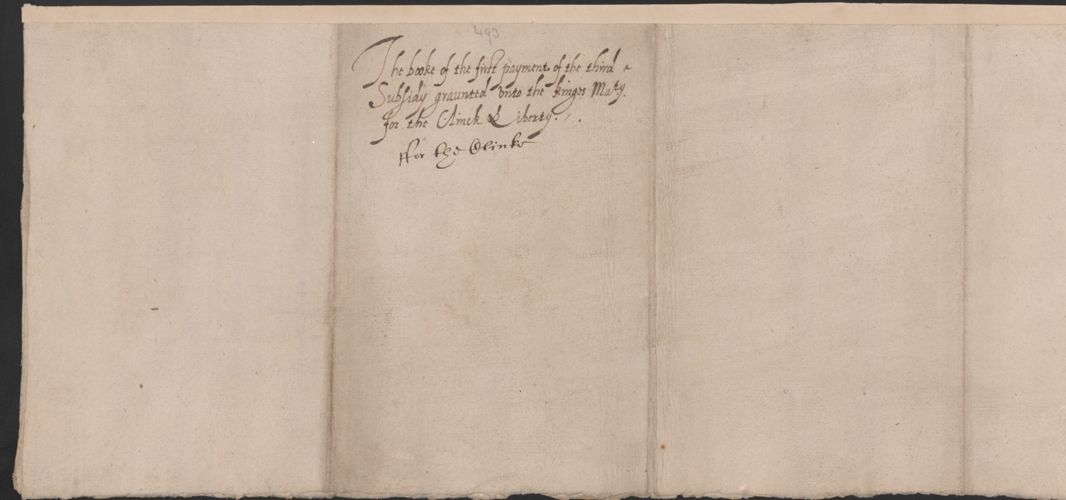 493
The booke of the first payment of the third
Subsidy graunted vnto the kinges Maty.
for the Clinck Liberty.
ffor the Clinke